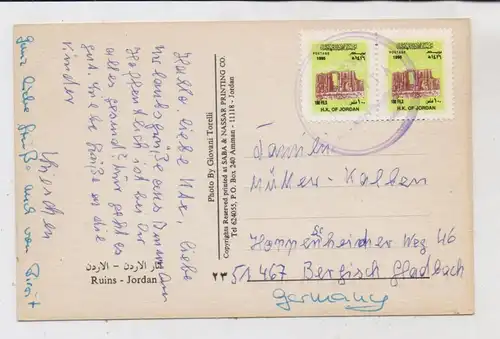 Hallo liebe Ute, liebe
Urlaubsgrüße aus Amman
Hoffentlich ist bei Dir
alles gesund? Mir geht es
gut. Liebe Grüße an die
Kinder
Ganz liebe Grüße auch von
Photo By Giovani Torelli
Copyrights Reserved printed at SABA & NASSAR PRINTING CO.
Tel 624055, P.O. Box 240 Amman - 11118 - Jordan
آثار الأردن – الأردن
Ruins - Jordan
٢٣
POSTAGE
1996
100 FILS ١٠٠ فلس
H.K. OF JORDAN
POSTAGE
1996
100 FILS ١٠٠ فلس
H.K. OF JORDAN
Familie
Müller-Kolben
Hoppersheider Weg 46
51467 Bergisch Gladbach
Germany